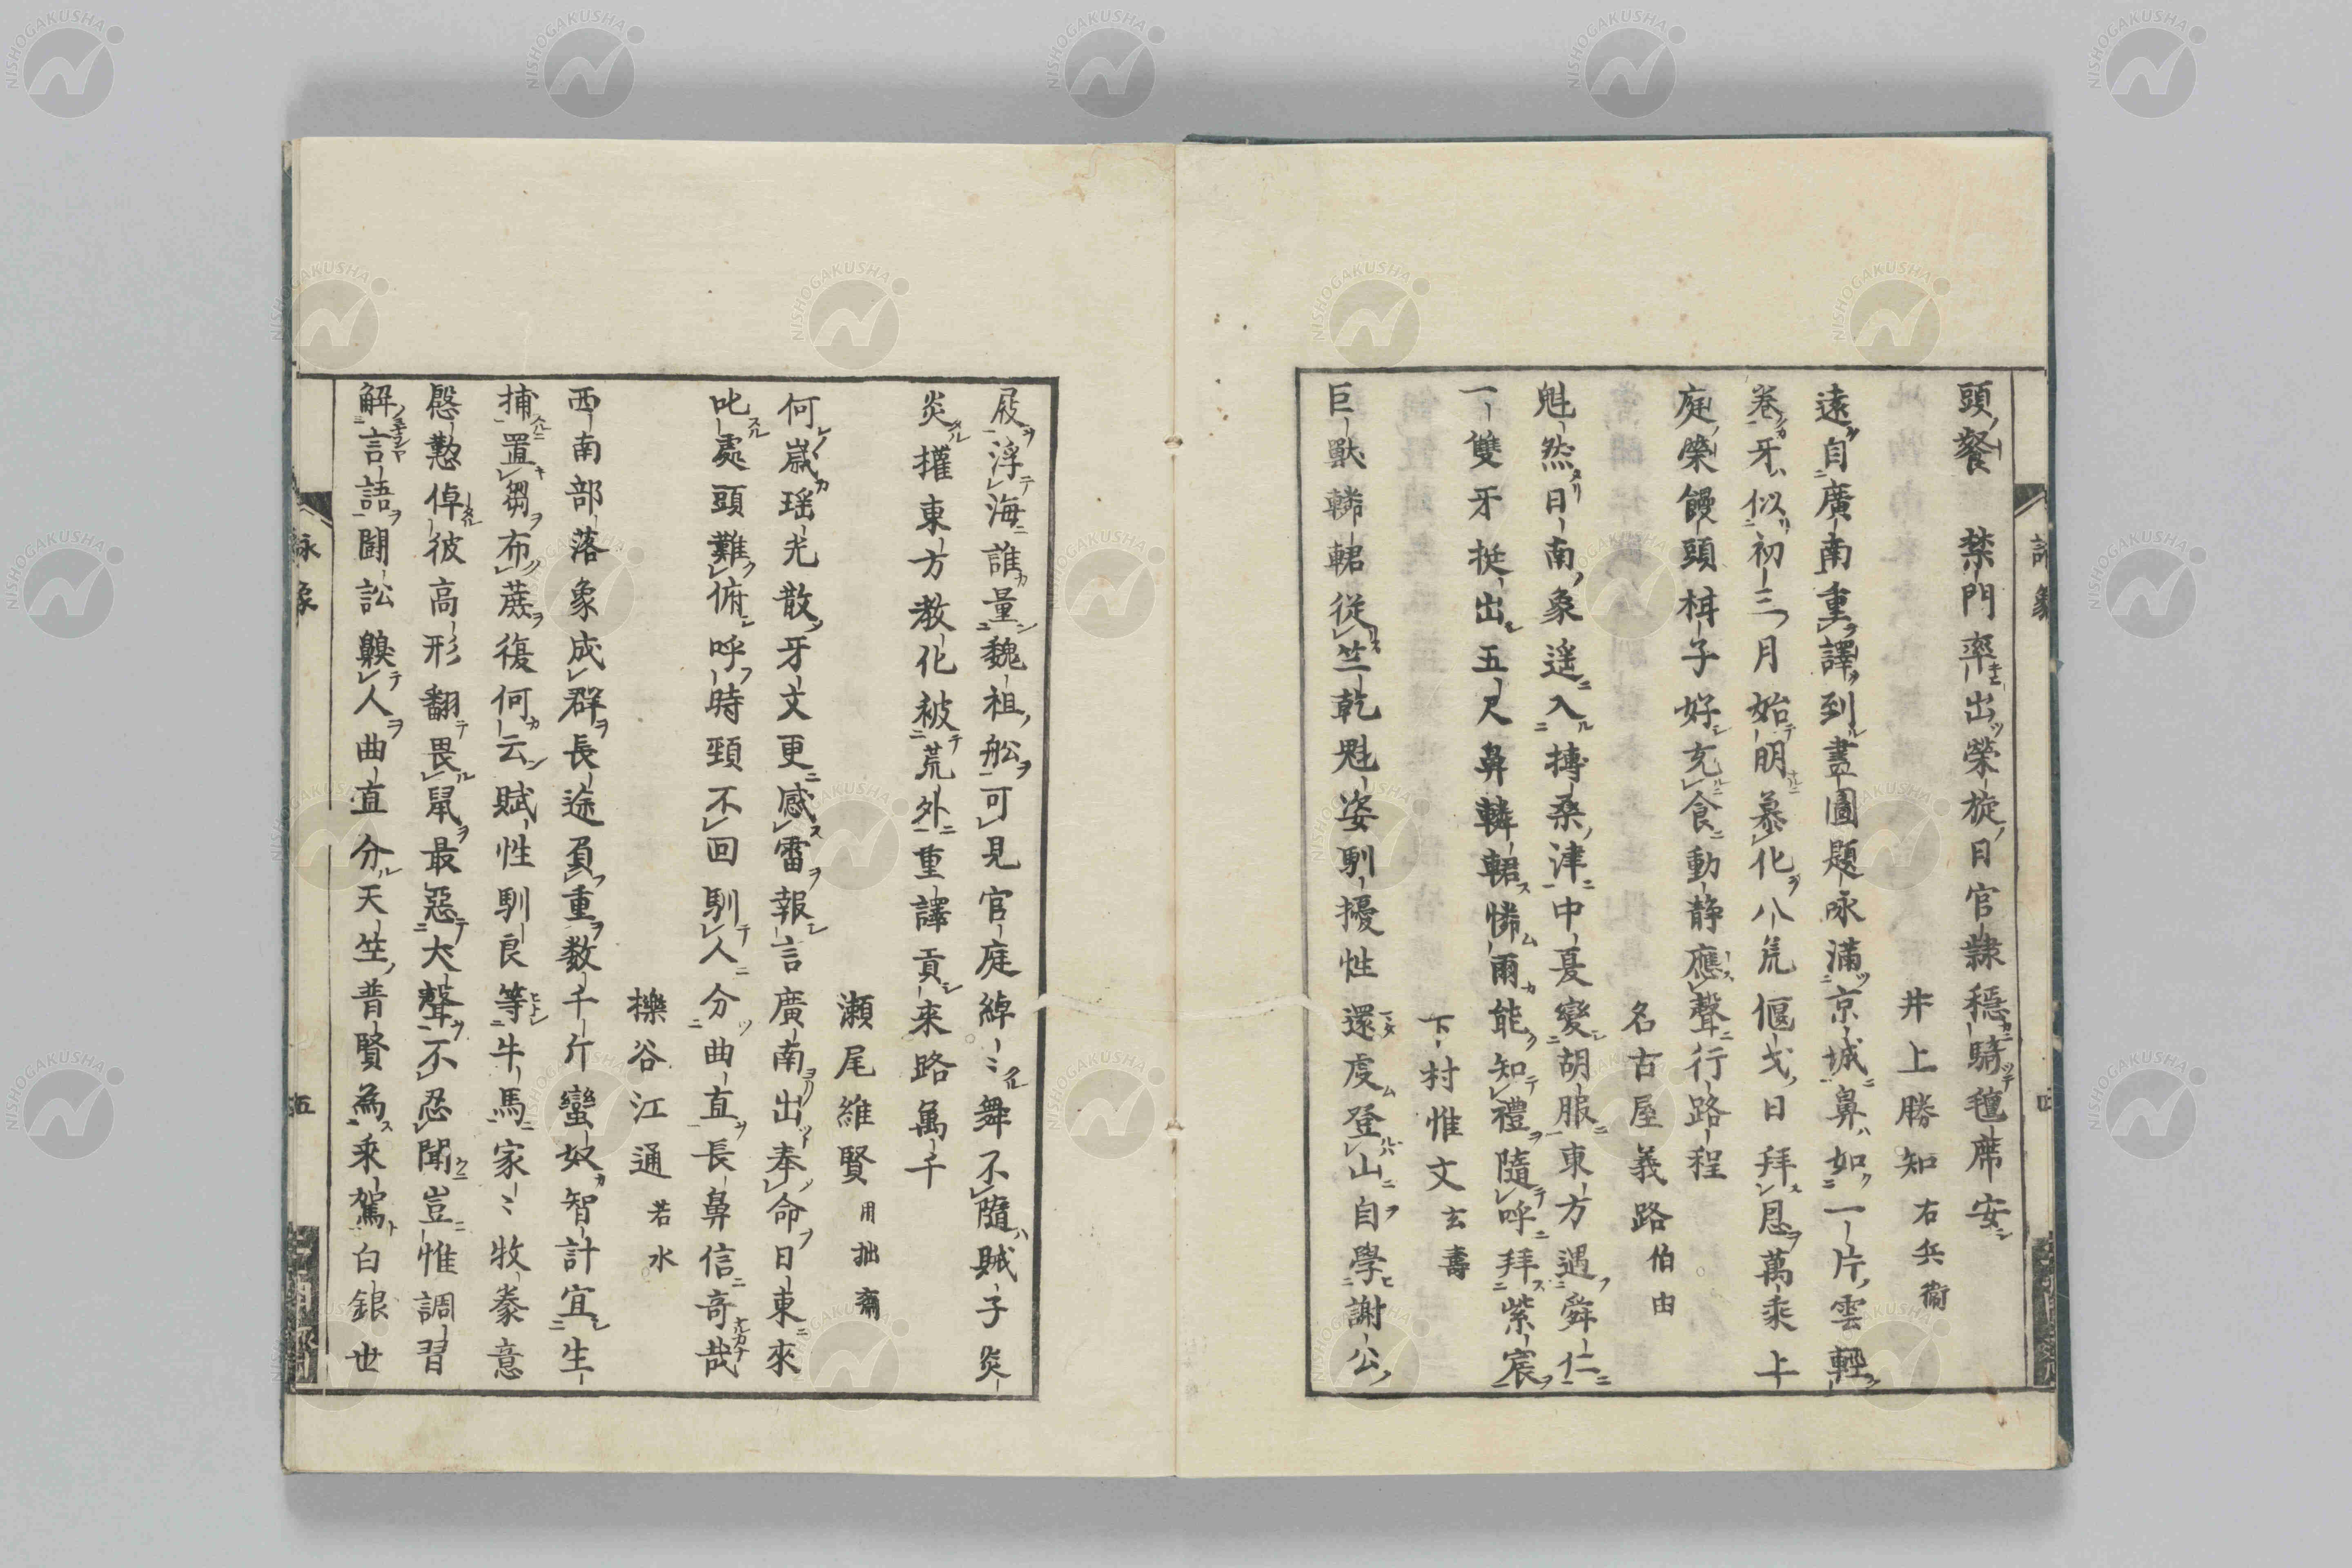 頭餐　禁門率出榮旋日官隷穩騎氊席安
井上勝知 右兵衞
遠自廣南重譯到畫圖題咏滿京城鼻如一片雲輕
卷牙似初三月始明慕化八荒偃戈日拜恩萬乘上
庭榮饅頭柑子好充食動静應聲行路程
名古屋義路 伯由
魁然日南象遥入摶桑津中夏變胡服東方遇舜仁
一雙牙挺出五尺鼻轔輑憐爾能知禮隨呼拜紫宸
下村惟文 玄壽
巨獸轔輑從竺乾魁姿馴擾性還虔登山自學謝公
屐浮海誰量魏祖舩可見官庭綽〻舞不隨賊子炎
炎權東方教化被荒外重譯貢來路萬千
瀬尾維賢 用拙齋
何歳瑶光散牙文更感雷報言廣南出奉命日東來
叱處頭難俯呼時頸不回馴人分曲直長鼻信奇哉
櫟谷江通 若水
西南部落象成群長途負重数千斤蠻奴智計宜生
捕置蒭布蔗復何云賦性馴良等牛馬家〻牧豢意
慇懃倬彼高形翻畏鼠最惡犬聲不忍聞豈惟調習
解言語闘訟齅人曲直分天竺普賢為乘駕白銀世
詠象
五
詠象
四
NISHOGAKUSHA